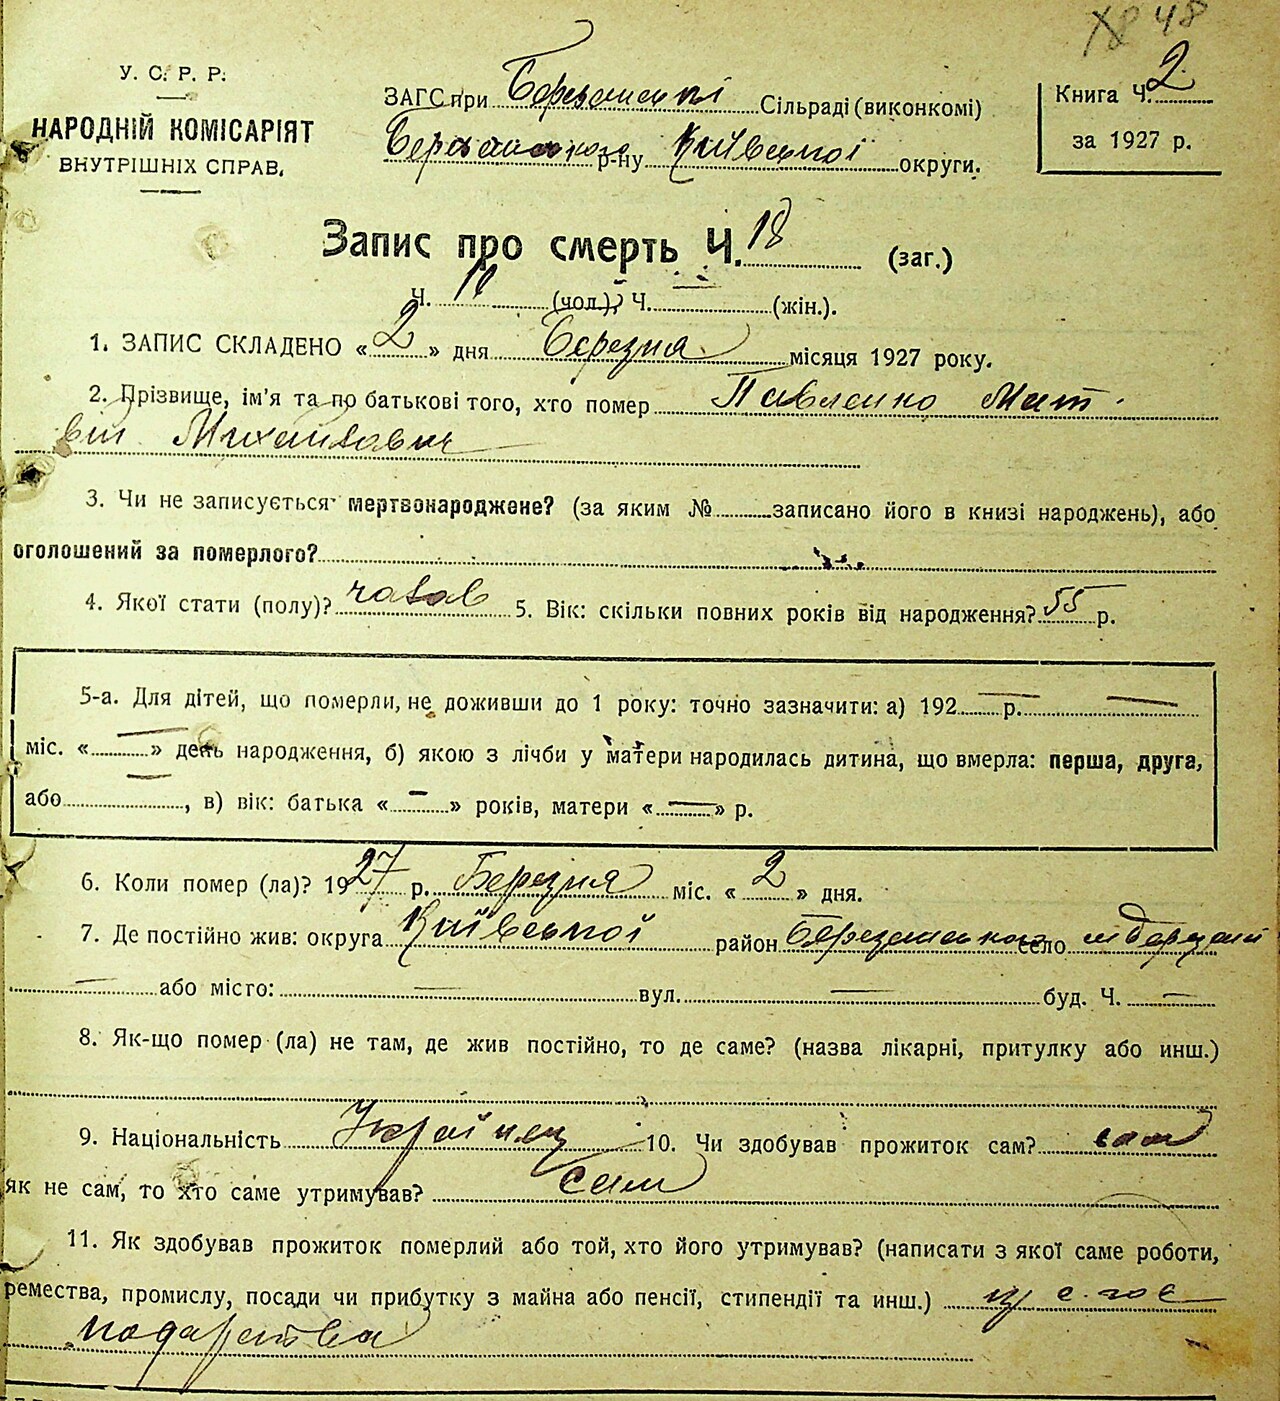 48
У. С. Р. Р.
НАРОДНІЙ КОМІСАРІЯТ
ВНУТРІШНІХ СПРАВ.
ЗАГС при Березанській Сільраді (виконкомі)
Березанського р-ну Київської округи.
Книга Ч. 2
за 1927 р.
Запис про смерть Ч. 18 (заг.)
Ч. 10 (чол.) Ч. (жін.).
1. ЗАПИС СКЛАДЕНО « 2 » дня Березня місяця 1927 року.
2. Прізвище, ім'я та по батькові того, хто помер Павленко Мат-
вій Михайлович
3. Чи не записується мертвонароджене? (за яким № записано його в книзі народжень), або
оголошений за померлого?
4. Якої стати (полу)? чолов 5. Вік: скільки повних років від народження? 55 р.
5-а. Для дітей, що померли, не доживши до 1 року: точно зазначити: а) 192 — р. —
міс. « — » день народження, б) якою з лічби у матери народилась дитина, що вмерла: перша, друга,
або — , в) вік: батька « — » років, матери « — » р.
6. Коли помер (ла)? 1927 р. Березня міс. « 2 » дня.
7. Де постійно жив: округа Київської район Березанського село м Березань
— або місто: — вул. — буд. Ч. —
8. Як-що помер (ла) не там, де жив постійно, то де саме? (назва лікарні, притулку або инш.)
9. Національність Українец 10. Чи здобував прожиток сам? сам
як не сам, то хто саме утримував? сам
11. Як здобував прожиток померлий або той, хто його утримував? (написати з якої саме роботи,
ремества, промислу, посади чи прибутку з майна або пенсії, стипендії та инш.) із с. гос
подарства